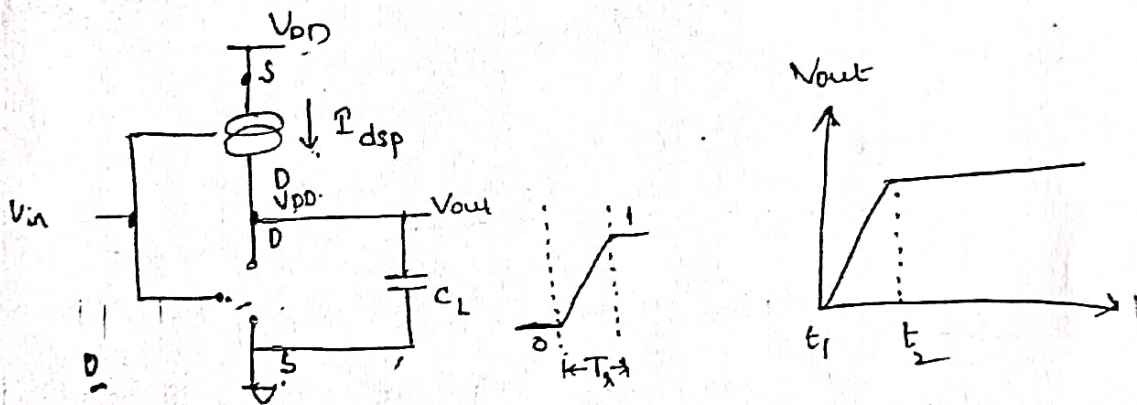 V_DD
S
I_dsp
D
V_DD.
V_in
V_out
D
C_L
S
0
0
1
T_r
V_out
t_1
t_2